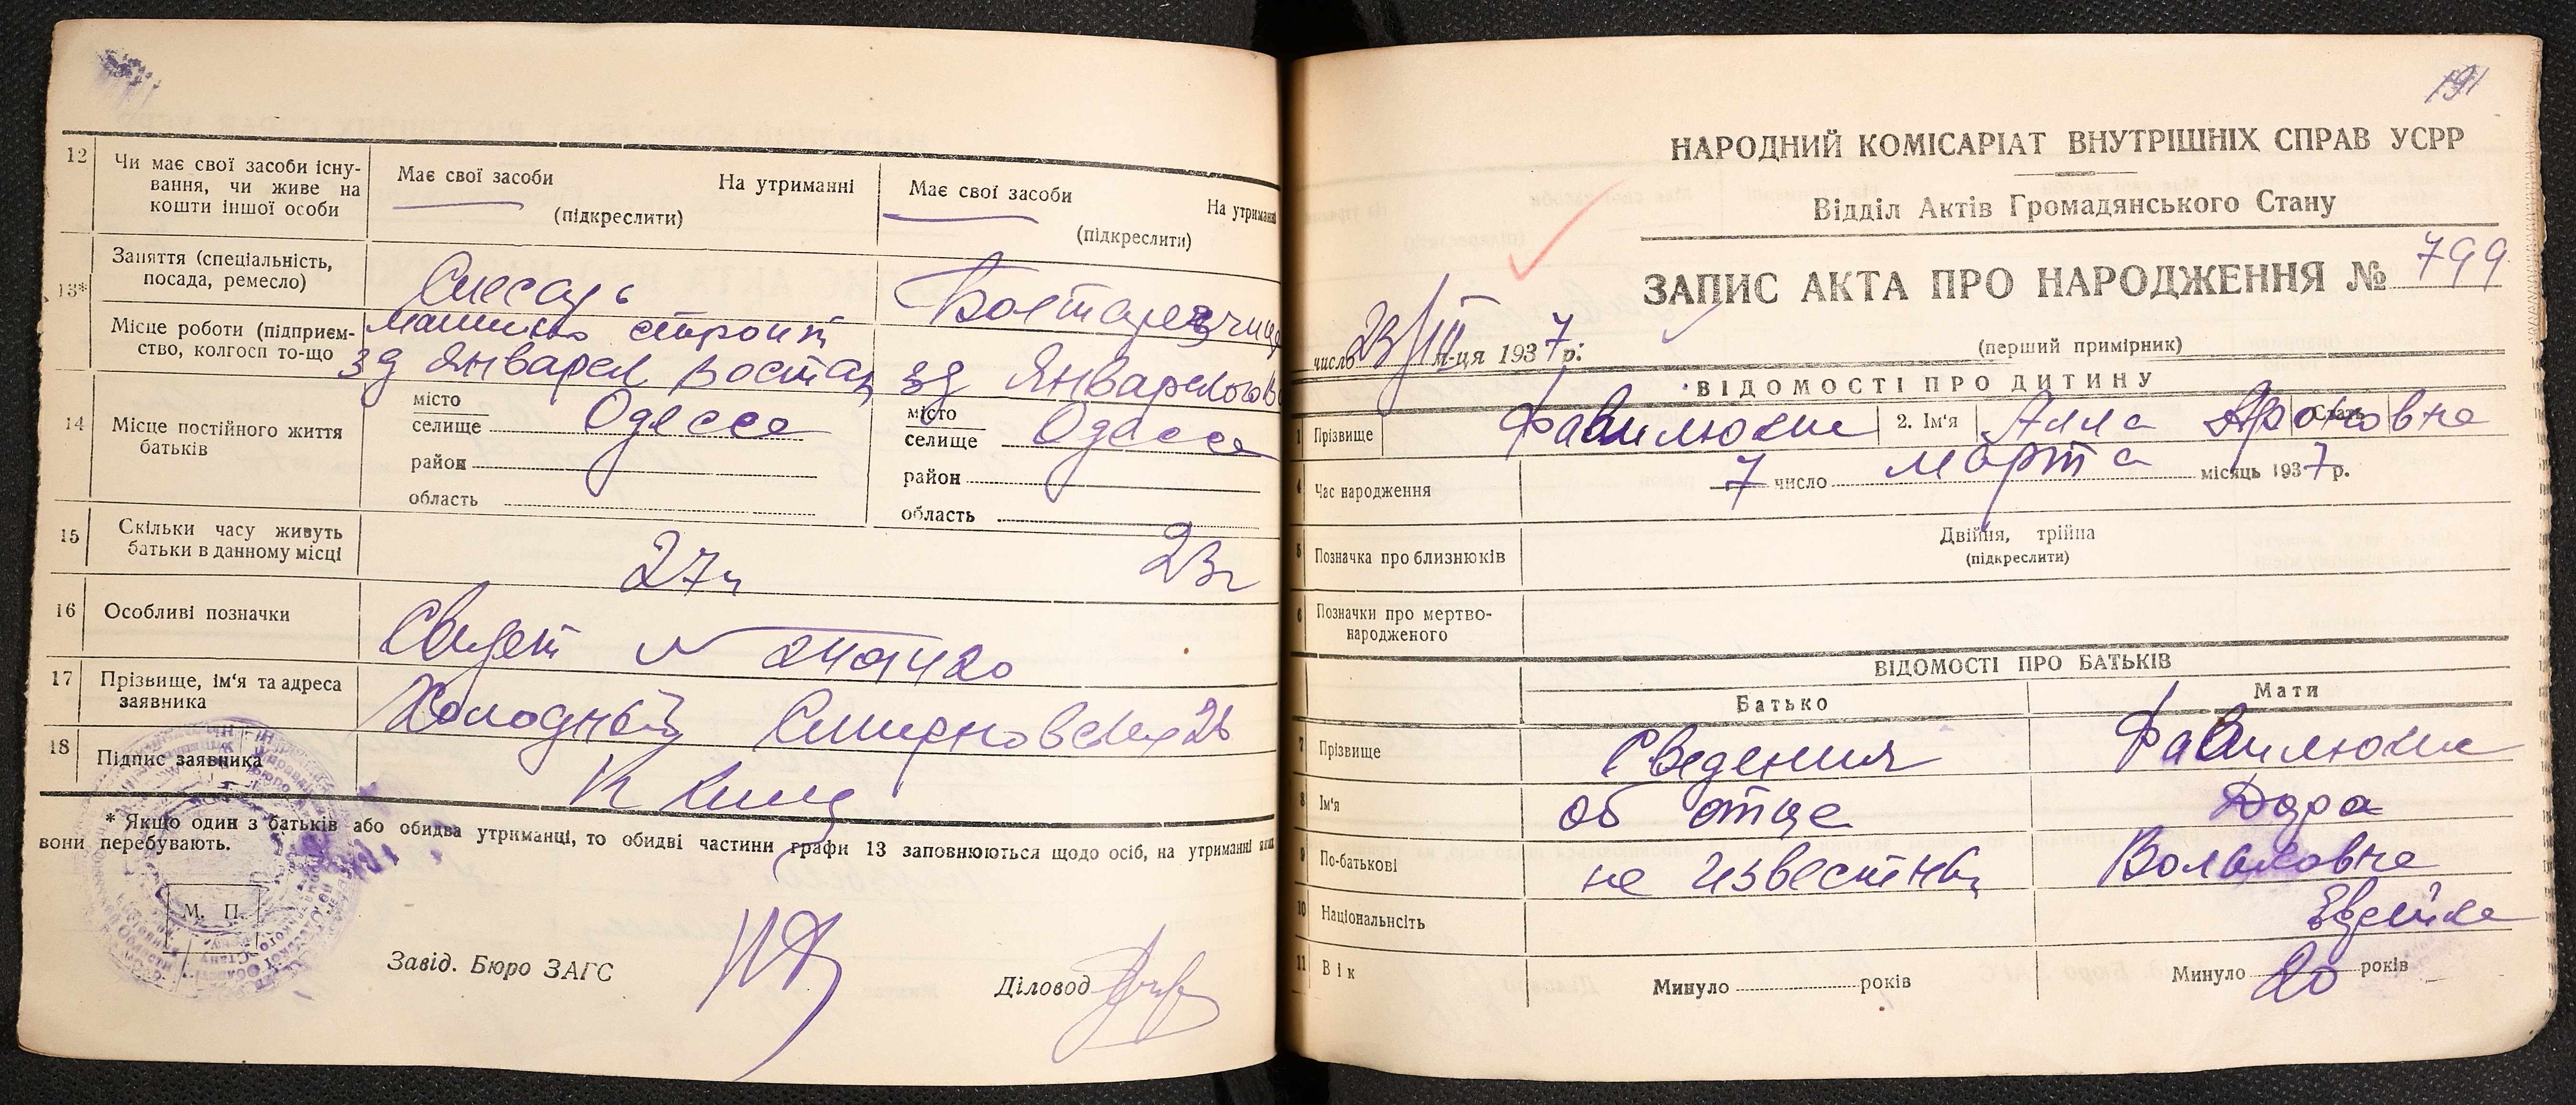 12 Чи має свої засоби існу-
вання, чи живе на
кошти іншої особи
Має свої засоби На утриманні
(підкреслити)
Має свої засоби На утриманні
(підкреслити)
13* Заняття (спеціальність,
посада, ремесло)
Слесарь
Місце роботи (підприєм-
ство, колгосп то-що
зд Январск
зд Январского
14 Місце постійного життя
батьків
місто
селище Одесса
район
область
місто
селище Одесса
район
область
15 Скільки часу живуть
батьки в данному місці
27 23г
16 Особливі позначки
17 Прізвище, ім'я та адреса
заявника
Холодный
18 Підпис заявника
* Якщо один з батьків або обидва утриманці, то обидві частини графи 13 заповнюються щодо осіб, на утриманні яких
вони перебувають.
М. П.
Завід. Бюро ЗАГС
Діловод
191
НАРОДНИЙ КОМІСАРІАТ ВНУТРІШНІХ СПРАВ УСРР
Відділ Актів Громадянського Стану
ЗАПИС АКТА ПРО НАРОДЖЕННЯ № 799
число 23/III м-ця 1937 р:
(перший примірник)
ВІДОМОСТІ ПРО ДИТИНУ
1 Прізвище Фавилюкис 2. Ім'я Алла Ароновна Стать
4 Час народження 7 число марта місяць 1937 р.
5 Позначка про близнюків
Двійня, трійна
(підкреслити)
6 Позначки про мертво-
народженого
ВІДОМОСТІ ПРО БАТЬКІВ
Батько Мати
7 Прізвище Сведения Фавилюкис
8 Ім'я об отце Дора
9 По-батькові не известны Вольковна
10 Національність Еврейка
11 Вік Минуло років Минуло 20 років